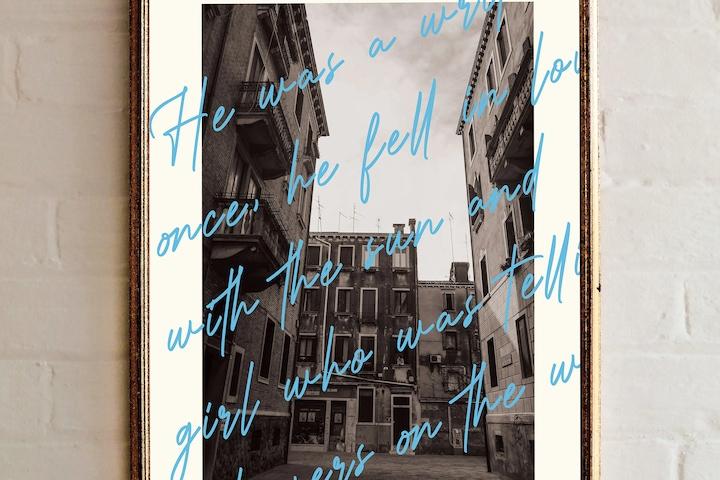 He was a
once, he fell in lov
with the sun and
girl who was telli
on the w